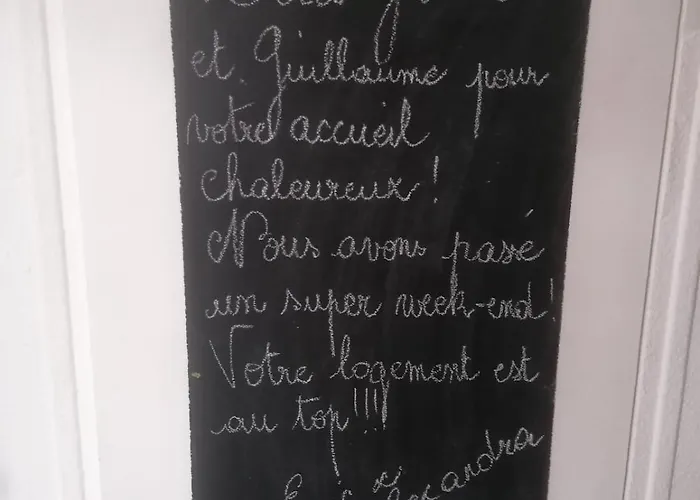 et Guillaume pour
votre accueil
chaleureux !
Nous avons passé
un super week-end!
Votre logement est
au top!!!